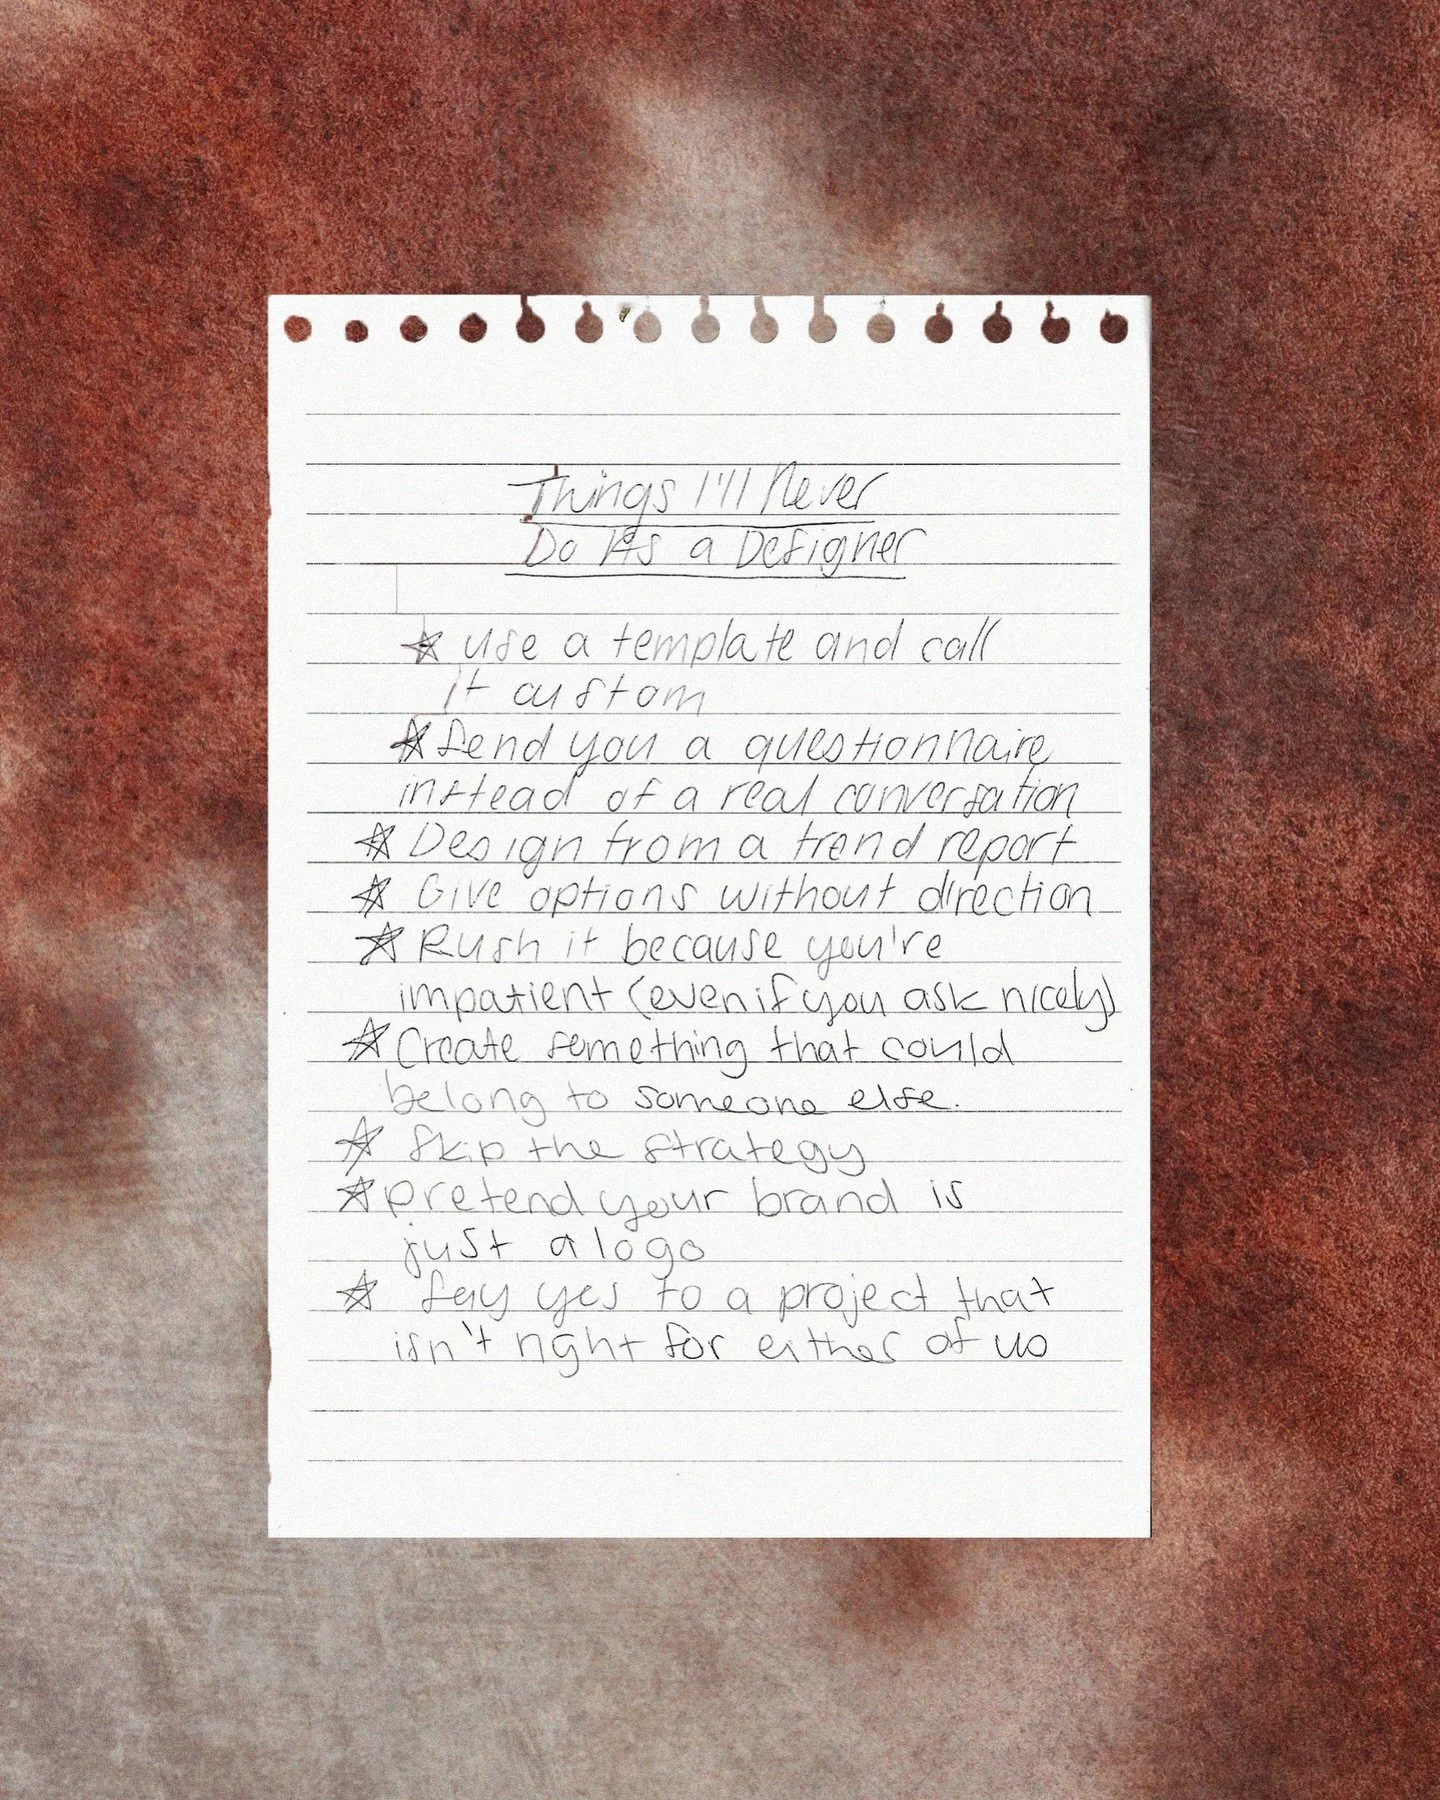 Things I'll Never
Do As a Designer
☆ use a template and call
it custom
☆ Send you a questionnaire
instead of a real conversation
☆ Design from a trend report
☆ Give options without direction
☆ Rush it because you're
impatient (even if you ask nicely)
☆ Create something that could
belong to someone else.
☆ Skip the strategy
☆ pretend your brand is
just a logo
☆ Say yes to a project that
isn't right for either of us